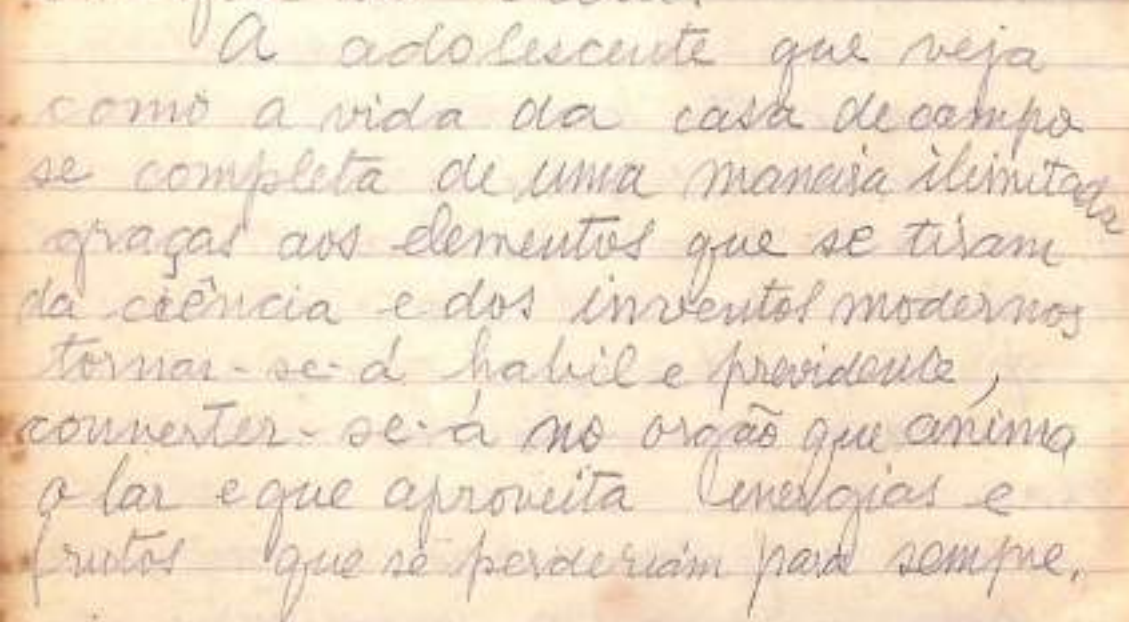 A adolescente que veja
como a vida da casa de campo
se completa de uma maneira ilimitada
graças aos elementos que se tiram
da ciência e dos inventos modernos
tornar-se-á habil e previdente,
converter-se-á no orgão que anima
o lar e que aproveita energias e
frutos que se perderiam para sempre.